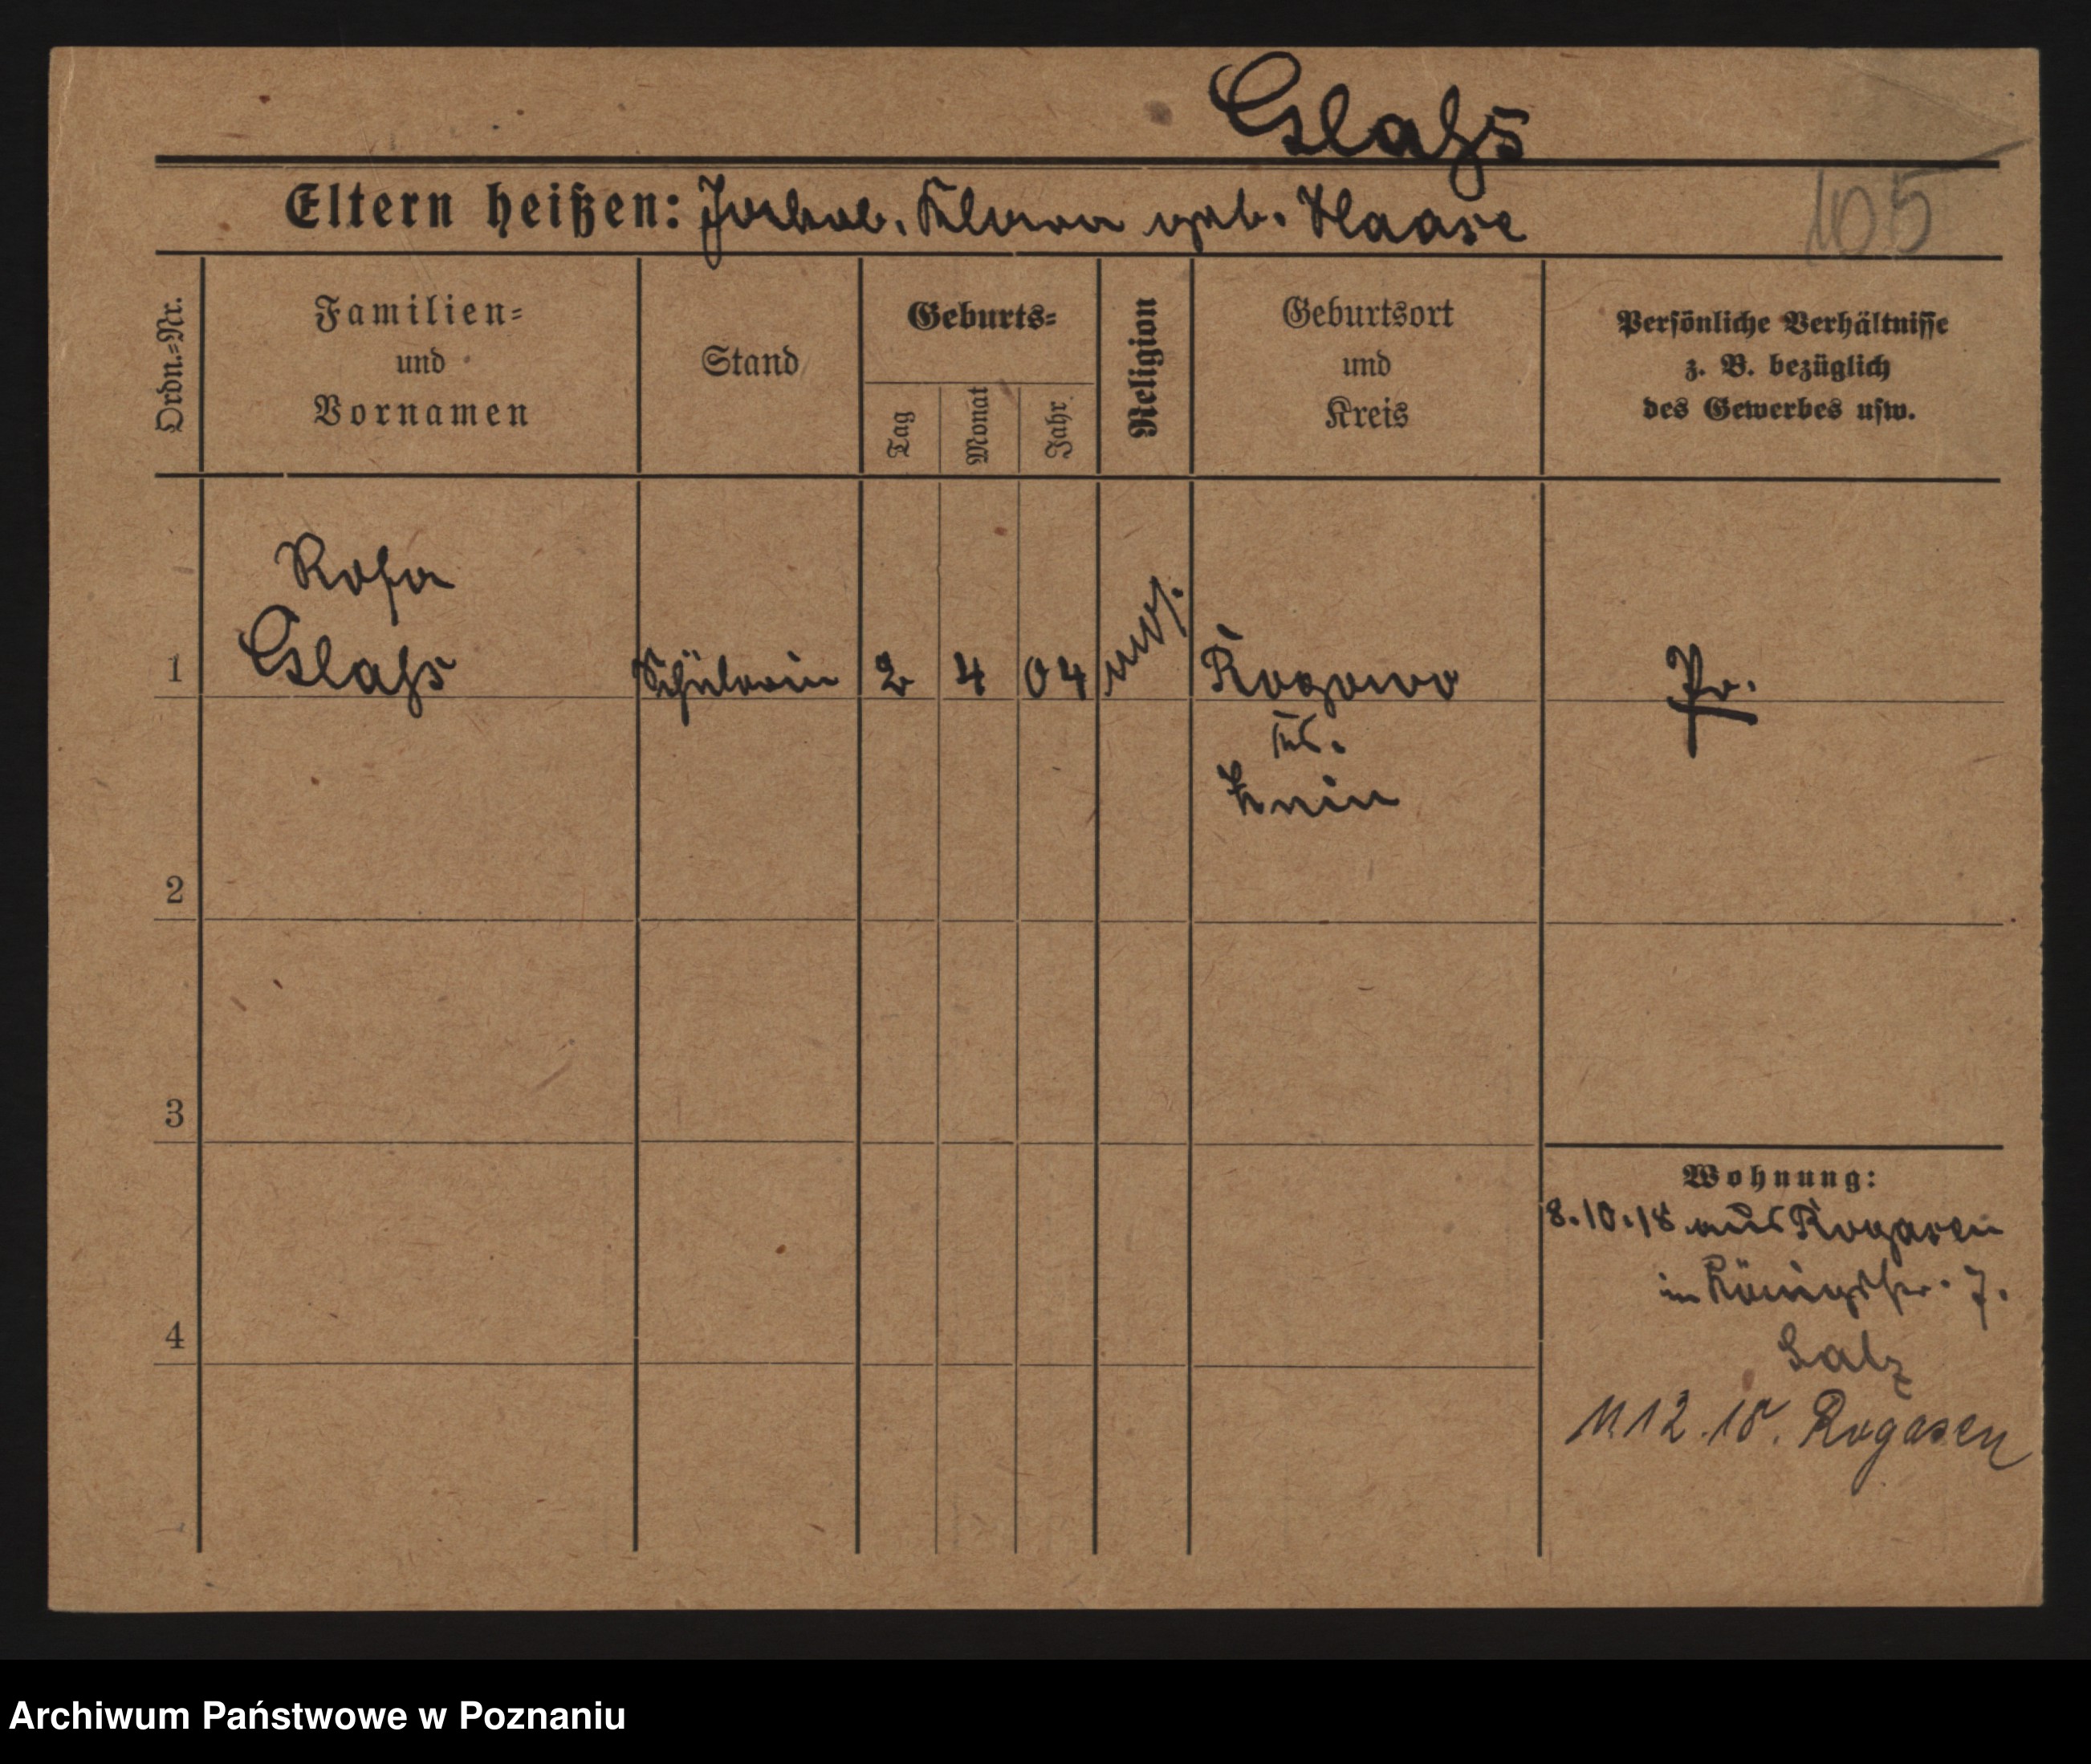 Glaß
Eltern heißen: Jakob, Klara geb. Haase
105
Ordn.=Nr.
Familien=
und
Vornamen
Stand
Geburts=
Tag
Monat
Jahr
Religion
Geburtsort
und
Kreis
Persönliche Verhältnisse
z. B. bezüglich
des Gewerbes usw.
Rosa
1 Glaß Schülerin 2 4 04 mos. Rogowo Pr.
Kr.
Znin
2
3
Wohnung:
8.10.18 aus Rogasen
in Königstr. 7.
4
11.12.18. Rogasen
Archiwum Państwowe w Poznaniu